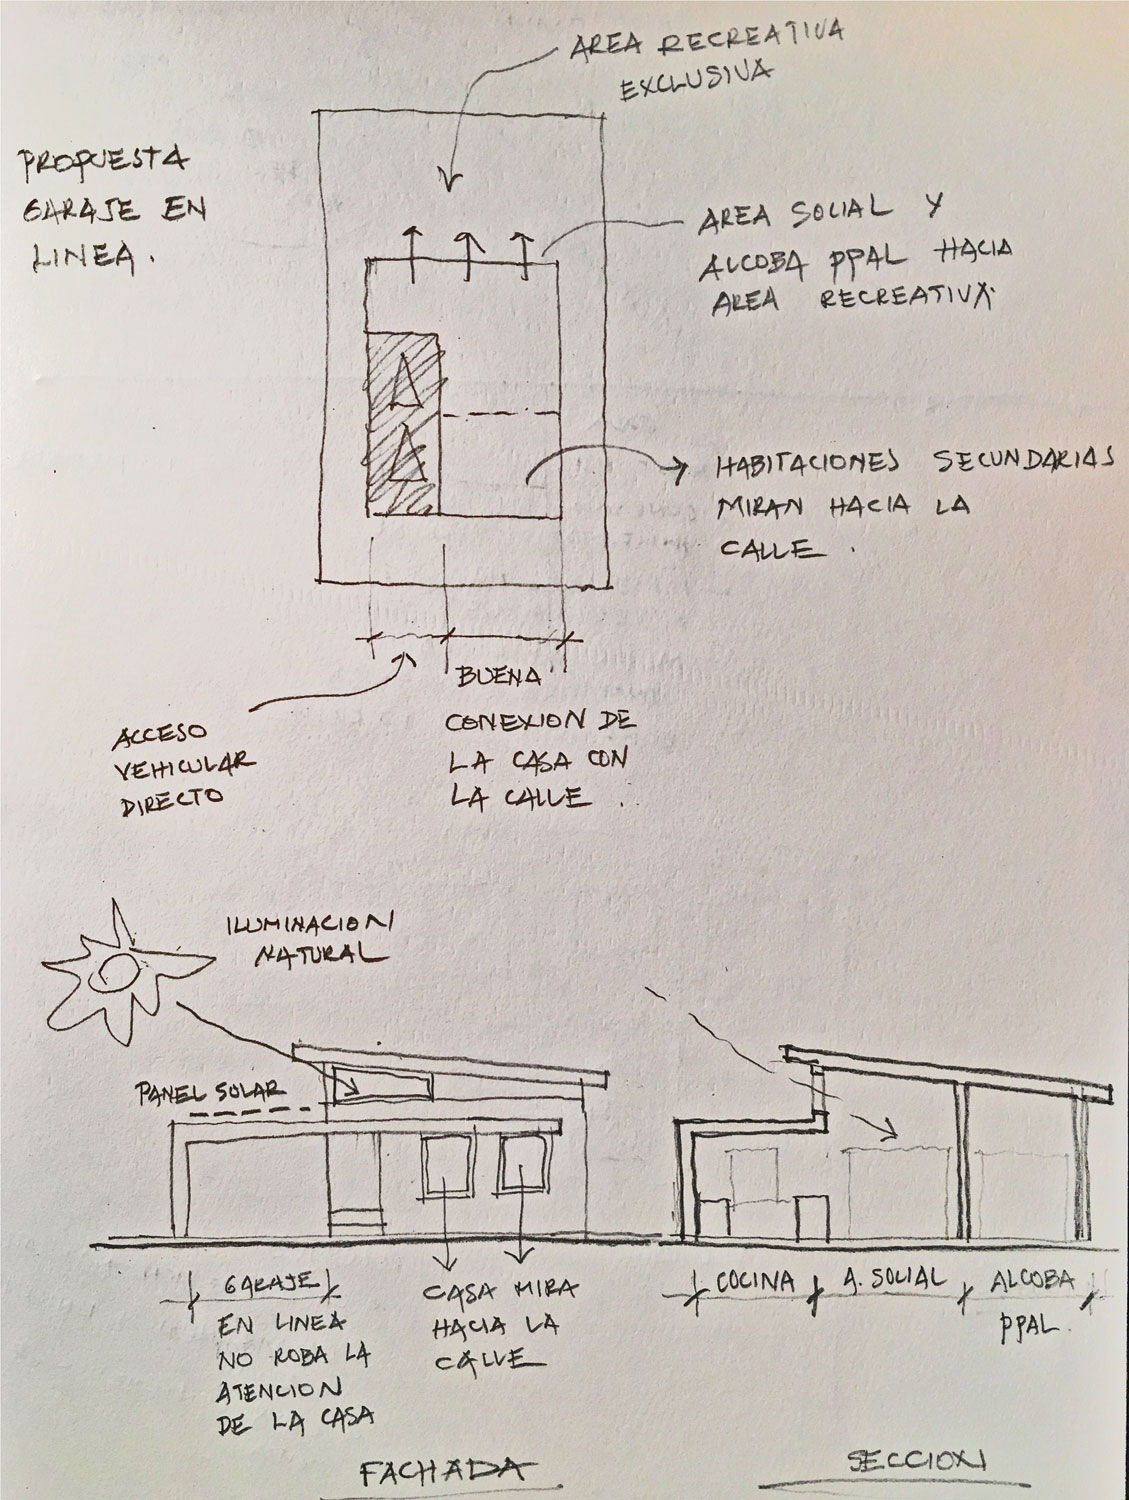 AREA RECREATIVA
EXCLUSIVA
PROPUESTA
GARAJE EN
LINEA.
AREA SOCIAL Y
ALCOBA PPAL HACIA
AREA RECREATIVA.
HABITACIONES SECUNDARIAS
MIRAN HACIA LA
CALLE.
ACCESO
VEHICULAR
DIRECTO
BUENA
CONEXION DE
LA CASA CON
LA CALLE.
ILUMINACION
NATURAL
PANEL SOLAR
GARAJE
EN LINEA
NO ROBA LA
ATENCION
DE LA CASA
CASA MIRA
HACIA LA
CALLE
FACHADA
COCINA
A. SOCIAL
ALCOBA
PPAL.
SECCION